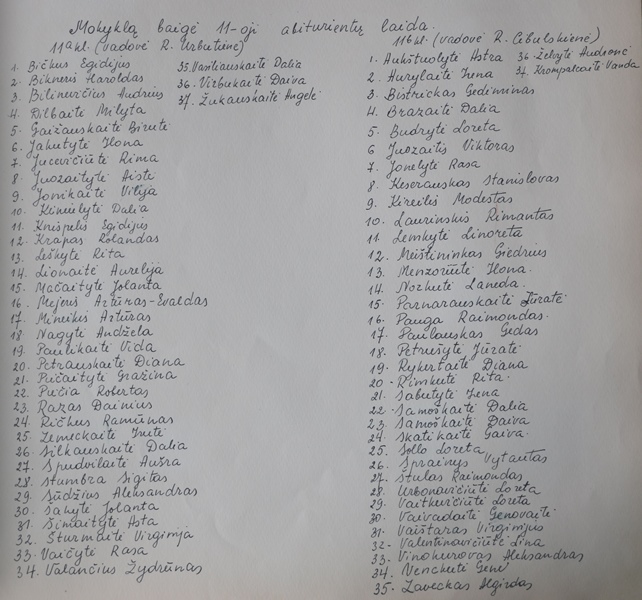 Mokyklą baigė 11-oji abiturientų laida.
11a kl. (vadovė R. Urbutienė)
1. Bičkus Egidijus
2. Bikneris Haroldas
3. Bilinevičius Audrius
4. Dilbaitė Milyta
5. Gaižauskaitė Birutė
6. Jakutytė Ilona
7. Jucevičiūtė Rima
8. Juozaitytė Aistė
9. Jonikaitė Vilija
10. Kinielytė Dalia
11. Knispelis Egidijus
12. Krapas Rolandas
13. Leškytė Rita
14. Lionaitė Aurelija
15. Mačaitytė Jolanta
16. Mejeris Artūras-Evaldas
17. Mineikis Artūras
18. Nagytė Andžela
19. Paulikaitė Vida
20. Petrauskaitė Diana
21. Pučaitytė Gražina
22. Pučia Robertas
23. Razas Dainius
24. Ričkus Ramūnas
25. Zemeckaitė Inetė
26. Silkauskaitė Dalia
27. Spudvilaitė Aušra
28. Stumbra Sigitas
29. Sūdžius Aleksandras
30. Šakytė Jolanta
31. Šimaitytė Asta
32. Šturmaitė Virginija
33. Vaičytė Rasa
34. Valančius Žydrūnas
35. Vasiliauskaitė Dalia
36. Virbukaitė Daiva
37. Žukauskaitė Angelė
11b kl. (vadovė R. Cibulskienė)
1. Aukštuolytė Astra
2. Aurylaitė Irena
3. Bistrickas Gediminas
4. Brazaitė Dalia
5. Budrytė Loreta
6 Juozaitis Viktoras
7. Jonelytė Rasa
8. Keserauskas Stanislovas
9. Kireilis Modestas
10. Laurinskis Rimantas
11. Lemkytė Linoreta
12. Meištininkas Giedrius
13. Menzoriūtė Ilona.
14. Norkutė Laneda.
15. Parnarauskaitė Jūratė
16. Pauga Raimondas.
17. Paulauskas Gedas
18. Petrušytė Jūratė
19. Rykertaitė Diana
20. Rimkutė Rita.
21. Sabutytė Irena
22. Samoškaitė Dalia
23. Samoškaitė Daiva
24. Skatikaitė Gaiva.
25. Sollo Loreta
26. Sprainys Vytautas
27. Stulas Raimondas
28. Urbonavičiūtė Loreta
29. Vaitkevičiūtė Loreta
30. Vaivadaitė Genovaitė
31. Vaištaras Virginijus
32. Valentinavičiūtė Lina
33. Vinokurovas Aleksandras
34. Venckutė Genė
35. Zaveckas Algirdas
36. Želvytė Audronė
37. Krompalcaitė Vanda